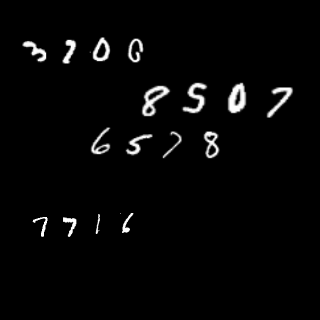 3200
8507
6578
7716